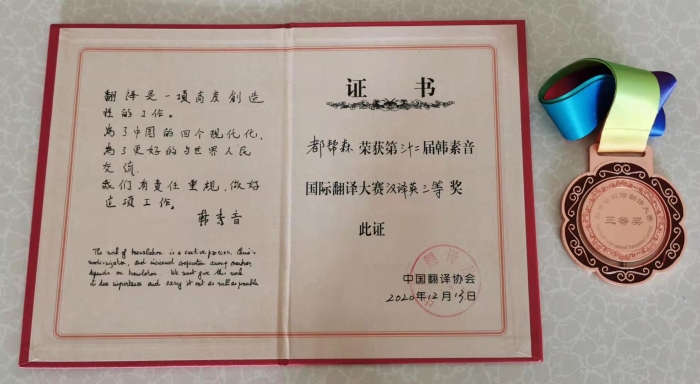 翻译是一项高度創造
性的工作。
为了中国的四个现代化,
为了更好的与世界人民
交流,
我们有責任重視,做好
这项工作。
韩素音
The work of translation is a creative process. China's
modernization, and increased cooperation among countries
depends on translation. We must give this work
its due importance and carry it out as well as possible
证 书
都帮森 荣获第三十二届韩素音
国际翻译大赛汉译英三等奖
此证
中国翻译协会
2020年12月13日
三等奖